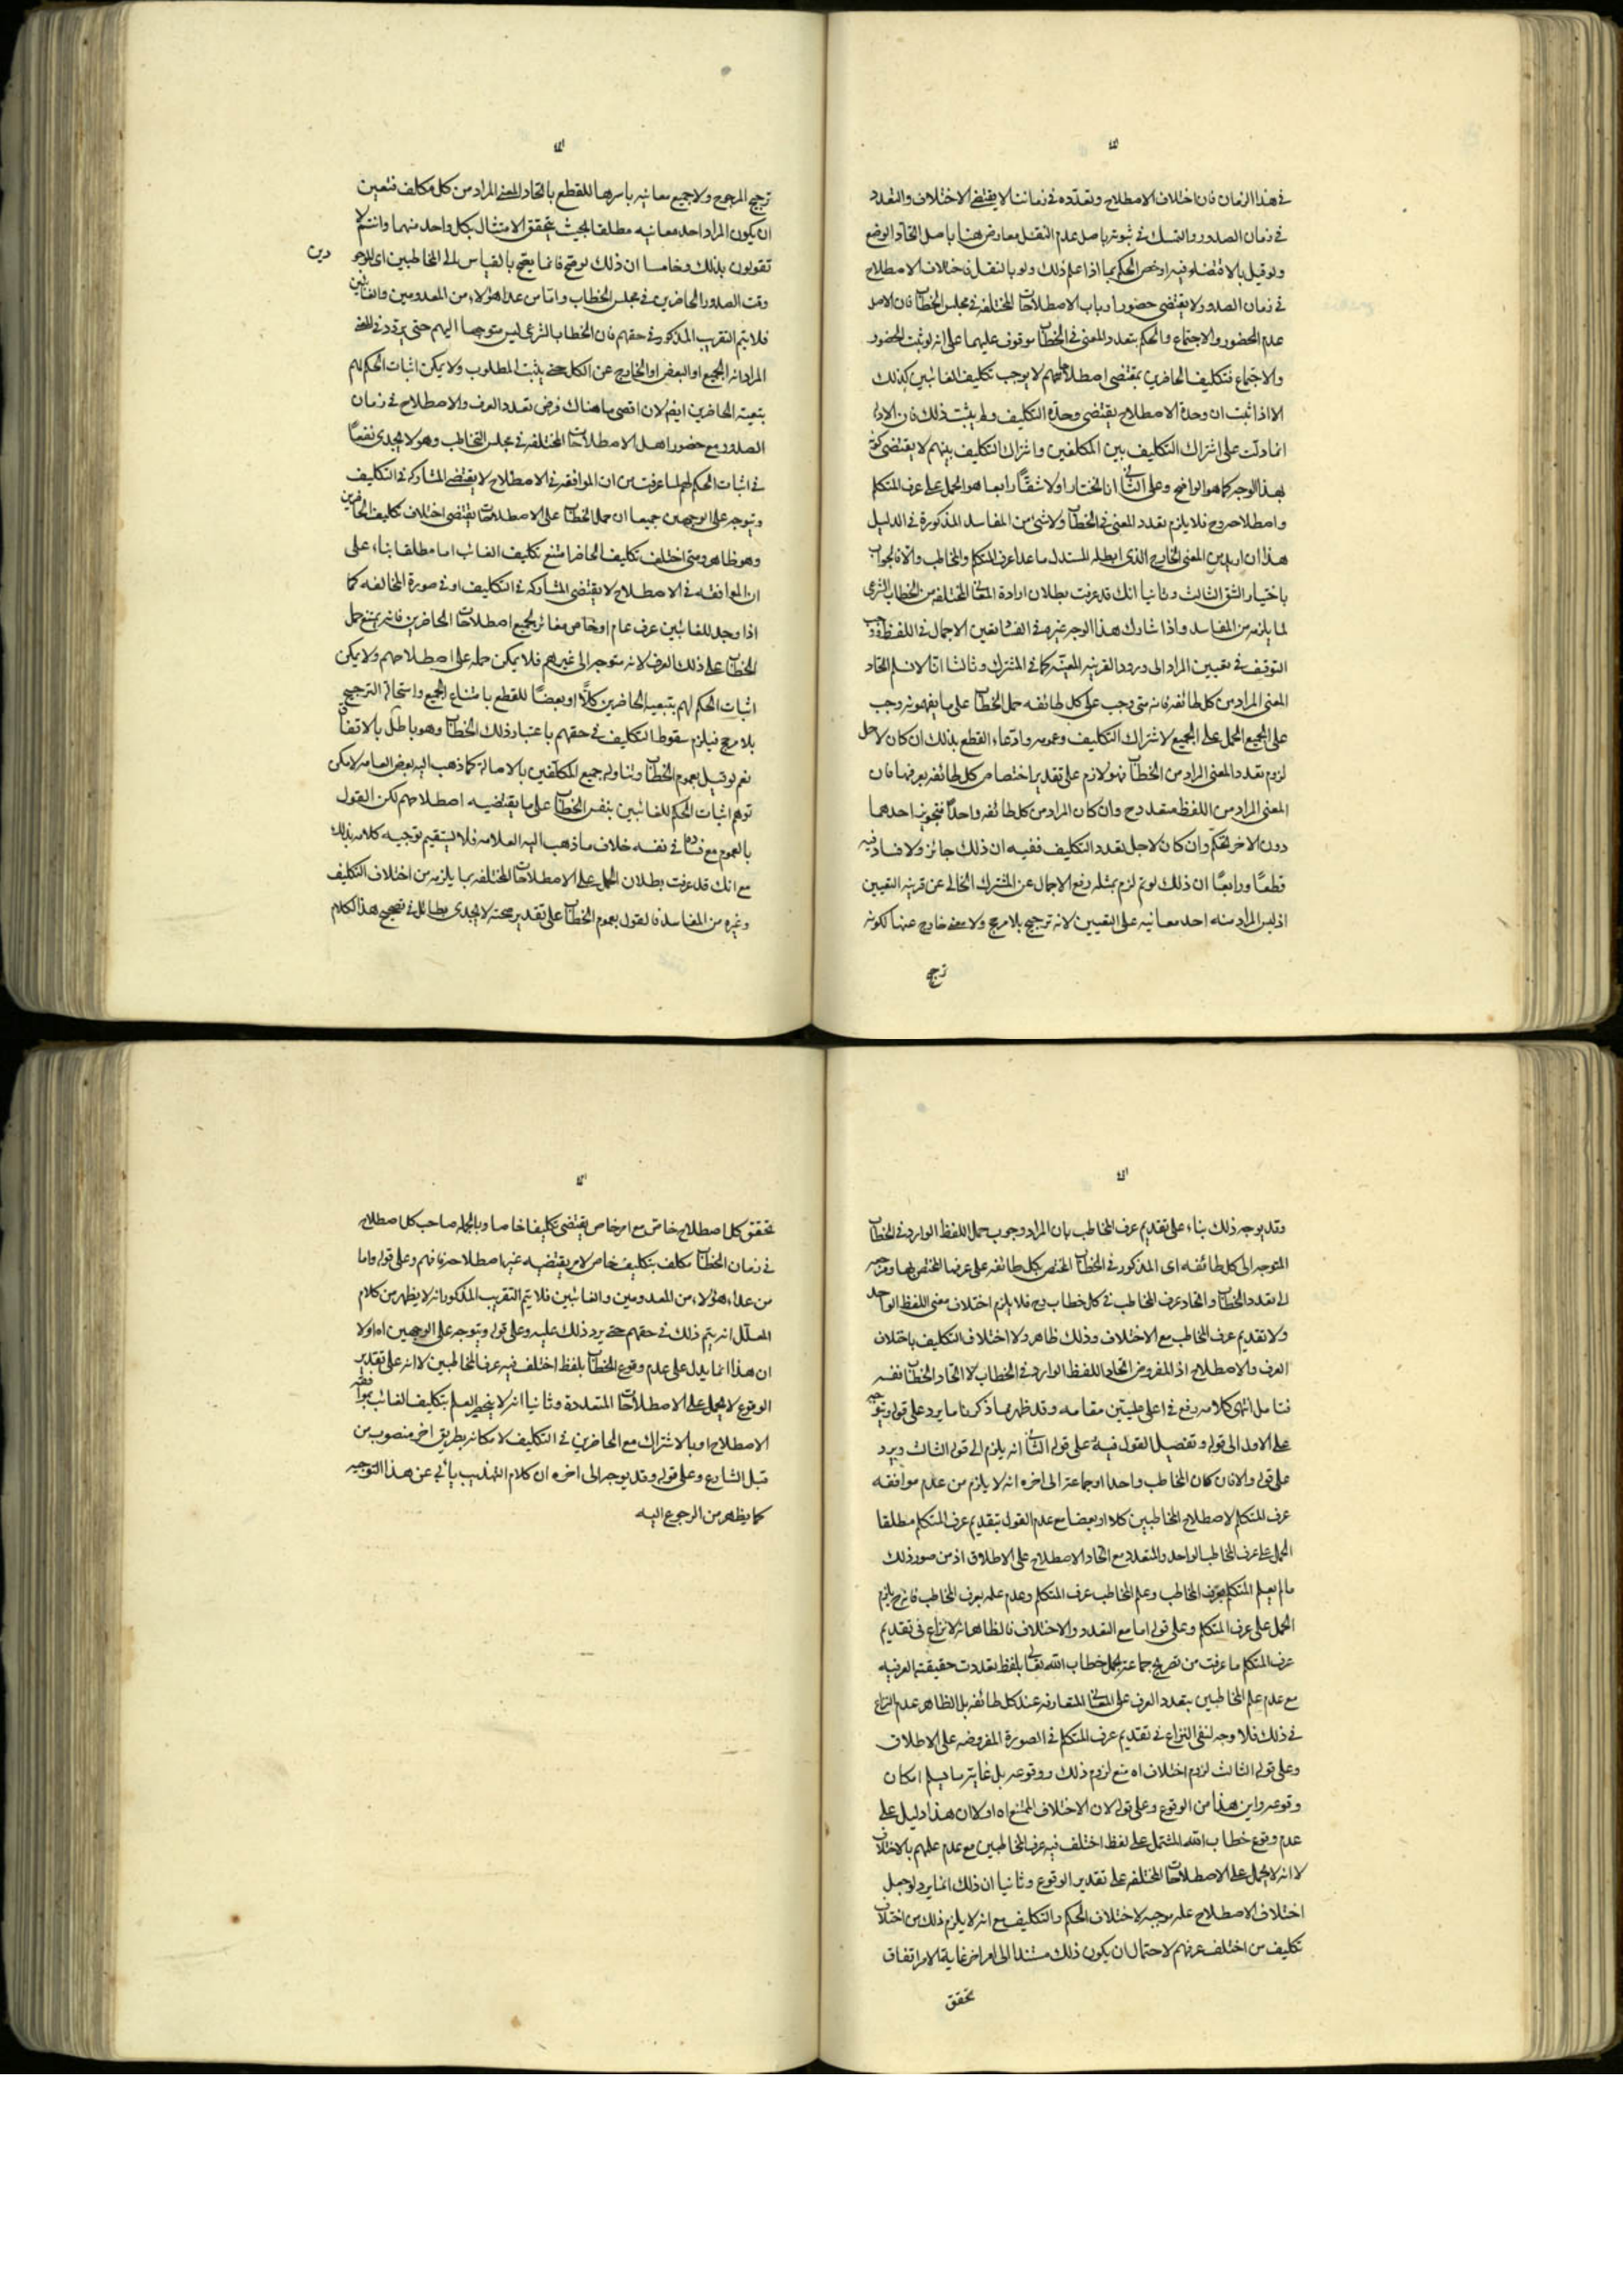 في هذا الزمان فان اختلاف الاصطلاح وتعدده في زماننا لا يقتضي الاختلاف والتعدد
في زمان الصدور والتمسك في ثبوته باصل عدم النقل معارض هنا باصل اتحاد الوضع
ولو قيل بالاقتضاء فيه او خص الحكم بما اذا علم ذلك ولو بالنقل فاختلاف الاصطلاح
في زمان الصدور لا يقتضي حضور ارباب الاصطلاحات المختلفه في مجلس الخطاب فان الاصل
عدم الحضور والاجتماع والحكم بتعدد المعنى في الخطاب موقوف عليهما على انه لو ثبت الحضور
والاجتماع فتكليف الحاضرين بمقتضى اصطلاحهم لا يوجب تكليف الغائبين كذلك
الا اذا ثبت ان وحدة الاصطلاح يقتضي وحدة التكليف ولم يثبت ذلك فان الادلة
انما دلت على اشتراك التكليف بين المكلفين واشتراك التكليف بينهم لا يقتضي كونه
بهذا الوجه كما هو الواضح وعلى الثاني انا نختار اولا شقًّا رابعا هو الحمل على عرف المتكلم
واصطلاحه وح فلا يلزم تعدد المعنى في الخطاب ولا شئ من المفاسد المذكورة في الدليل
هذا ان اريد من المعنى الخارج الذي ابطله المستدل ما عدا عرف المتكلم والمخاطب والا فالجواب
باختيار الشق الثالث وثانيا انك قد عرفت بطلان ارادة المعاني المختلفه من الخطاب الشرعي
لما يلزمه من المفاسد واذا شارك هذا الوجه غيره في الفساد تعين الاجمال في اللفظ ووجب
التوقف في تعيين المراد الى ورود القرينه المعينه كما في المشترك وثالثا انا لا نسلم اتحاد
المعنى المراد من كل طائفه فانه متى وجب على كل طائفه حمل الخطاب على ما يفهمونه وجب
على الجميع الحمل على الجميع لاشتراك التكليف وعمومه وادعاء القطع بذلك ان كان لاجل
لزوم تعدد المعنى المراد من الخطاب فهو لازم على تقدير اختصاص كل طائفه بعرفها فان
المعنى المراد من اللفظ متعدد ح وان كان المراد من كل طائفه واحدًا فتجويز احدهما
دون الاخر تحكم وان كان لاجل تعدد التكليف ففيه ان ذلك جائز ولا فساد فيه
قطعًا ورابعًا ان ذلك لو تم لزم بمثله رفع الاجمال عن المشترك الخالي عن قرينه التعيين
اذ ليس المراد منه احد معانيه على التعيين لانه ترجيح بلا مرجح ولا معنى خارج عنها لكونه
ترجيح
ترجيح المرجوح ولا جميع معانيه باسرها للقطع باتحاد المعنى المراد من كل مكلف فتعين
ان يكون المراد احد معانيه مطلقا بحيث يتحقق الامتثال بكل واحد منهما وانتم لا
تقولون بذلك وخامسا ان ذلك لو صح فانما يصح بالقياس الى المخاطبين اي الموجودين
وقت الصدور الحاضرين في مجلس الخطاب واما من عدا هؤلاء من المعدومين والغائبين
فلا يتم التقريب المذكور في حقهم فان الخطاب الشرعي ليس متوجها اليهم حتى يردد في المعنى
المراد انه الجميع او البعض او الخارج عن الكل حتى يثبت المطلوب ولا يمكن اثبات الحكم لهم
بتبعيته الحاضرين ايضا لان اقصى ما هناك فرض تعدد العرف والاصطلاح في زمان
الصدور مع حضور اهل الاصطلاحات المختلفه في مجلس التخاطب وهو لا يجدي نفعًا
في اثبات الحكم لهم لما عرفت من ان الموافقه في الاصطلاح لا يقتضي المشاركه في التكليف
ويتوجه على الوجهين جميعا ان حمل الخطاب على الاصطلاحات يقتضي اختلاف تكليف الحاضرين
وهو ظاهر ومتى اختلف تكليف الحاضر امتنع تكليف الغائب اما مطلقا بناء على
ان الموافقه في الاصطلاح لا يقتضي المشاركه في التكليف او في صورة المخالفه كما
اذا وجد للغائبين عرف عام او خاص مغائر لجميع اصطلاحات الحاضرين فانه يمتنع حمل
الخطاب على ذلك العرف لانه متوجه الى غيرهم فلا يمكن حمله على اصطلاحهم ولا يمكن
اثبات الحكم لهم بتبعيه الحاضرين كلًّا او بعضًا للقطع بامتناع الجميع واستحالة الترجيح
بلا مرجح فيلزم سقوط التكليف في حقهم باعتبار ذلك الخطاب وهو باطل بالاتفاق
نعم لو قيل بعموم الخطاب وتناوله جميع المكلفين بالاصالة كما ذهب اليه بعض العامه لامكن
توهم اثبات الحكم للغائبين بنفس الخطاب على ما يقتضيه اصطلاحهم لكن القول
بالعموم مع فساده في نفسه خلاف ما ذهب اليه العلامه فلا يستقيم توجيه كلامه بذلك
مع انك قد عرفت بطلان الحمل على الاصطلاحات المختلفه بما يلزمه من اختلاف التكليف
وغيره من المفاسد فالقول بعموم الخطاب على تقدير صحته لا يجدي بطائل في تصحيح هذا الكلام
وقد يوجه ذلك بناء على تقديم عرف المخاطب بان المراد وجوب حمل اللفظ الوارد في الخطاب
المتوجه الى كل طائفه اي المذكور في الخطاب المختص بكل طائفه على عرفها المختص بها ومرجعه
الى تعدد الخطاب واتحاد عرف المخاطب في كل خطاب وح فلا يلزم اختلاف معنى اللفظ الواحد
ولا تقديم عرف المخاطب مع الاختلاف وذلك ظاهر ولا اختلاف التكليف باختلاف
العرف والاصطلاح اذ المفروض اتحاد اللفظ الوارد في الخطاب لا اتحاد الخطاب نفسه
فتامل انتهى كلامه رفع في اعلى عليين مقامه وقد ظهر مما ذكرنا ما يرد على قوله ويتوجه
على الاول الى قوله وتفصيل القول فيه وعلى قوله الثاني انه يلزم الى قوله الثالث ويرد
على قوله والا فان كان المخاطب واحدا او جماعة الى اخره انه لا يلزم من عدم موافقه
عرف المتكلم لاصطلاح المخاطبين كلا او بعضا مع عدم القول بتقديم عرف المتكلم مطلقا
الحمل على عرف المخاطب الواحد والمتعدد مع اتحاد الاصطلاح على الاطلاق اذ من صور ذلك
ما لم يعلم المتكلم بعرف المخاطب وعلم المخاطب عرف المتكلم وعدم علمه بعرف المخاطب فانه ح يلزم
الحمل على عرف المتكلم وعلى قوله اما مع التعدد والاختلاف فالظاهر انه لا نزاع في تقديم
عرف المتكلم ما عرفت من تصريح جماعة بحمل خطاب الله تعالى بلفظ تعددت حقيقته العرفيه
مع عدم علم المخاطبين بتعدد العرف على المعاني المتعارفه عند كل طائفه بل الظاهر عدم النزاع
في ذلك فلا وجه لنفي النزاع في تقديم عرف المتكلم في الصورة المفروضه على الاطلاق
وعلى قوله الثالث لزوم اختلاف اه منع لزوم ذلك ووقوعه بل غايته ما يسلم امكان
وقوعه واين هذا من الوقوع وعلى قوله لان الاختلاف الممتنع اه اولا ان هذا دليل على
عدم وقوع خطاب الله المشتمل على لفظ اختلف فيه عرف المخاطبين مع عدم علمهم بالاختلاف
لا انه لا يحمل على الاصطلاحات المختلفه على تقدير الوقوع وثانيا ان ذلك انما يرد لو جعل
اختلاف الاصطلاح علة موجبه لاختلاف الحكم والتكليف مع انه لا يلزم ذلك من اختلاف
تكليف من اختلف عرفهم لاحتمال ان يكون ذلك مستندا الى امر اخر غاية الامر اتفاق
تحقق
تحقق كل اصطلاح خاص مع امر خاص يقتضي تكليفا خاصا وبالجمله صاحب كل اصطلاح
في زمان الخطاب مكلف بتكليف خاص لامر يقتضيه غير اصطلاحه فافهم وعلى قوله واما
من عدا هؤلاء من المعدومين والغائبين فلا يتم التقريب المذكور انه لا يظهر من كلام
المعلل انه يتم ذلك في حقهم حتى يرد ذلك عليه وعلى قوله ويتوجه على الوجهين اه اولا
ان هذا انما يدل على عدم وقوع الخطاب بلفظ اختلف فيه عرف المخاطبين لا انه على تقدير
الوقوع لا يحمل على الاصطلاحات المتعددة وثانيا انه لا ينحصر العلم بتكليف الغائب بموافقه
الاصطلاح او بالاشتراك مع الحاضرين في التكليف لامكانه بطريق اخر منصوب من
قبل الشارع وعلى قوله وقد يوجه الى اخره ان كلام التهذيب يأبى عن هذا التوجيه
كما يظهر من الرجوع اليه